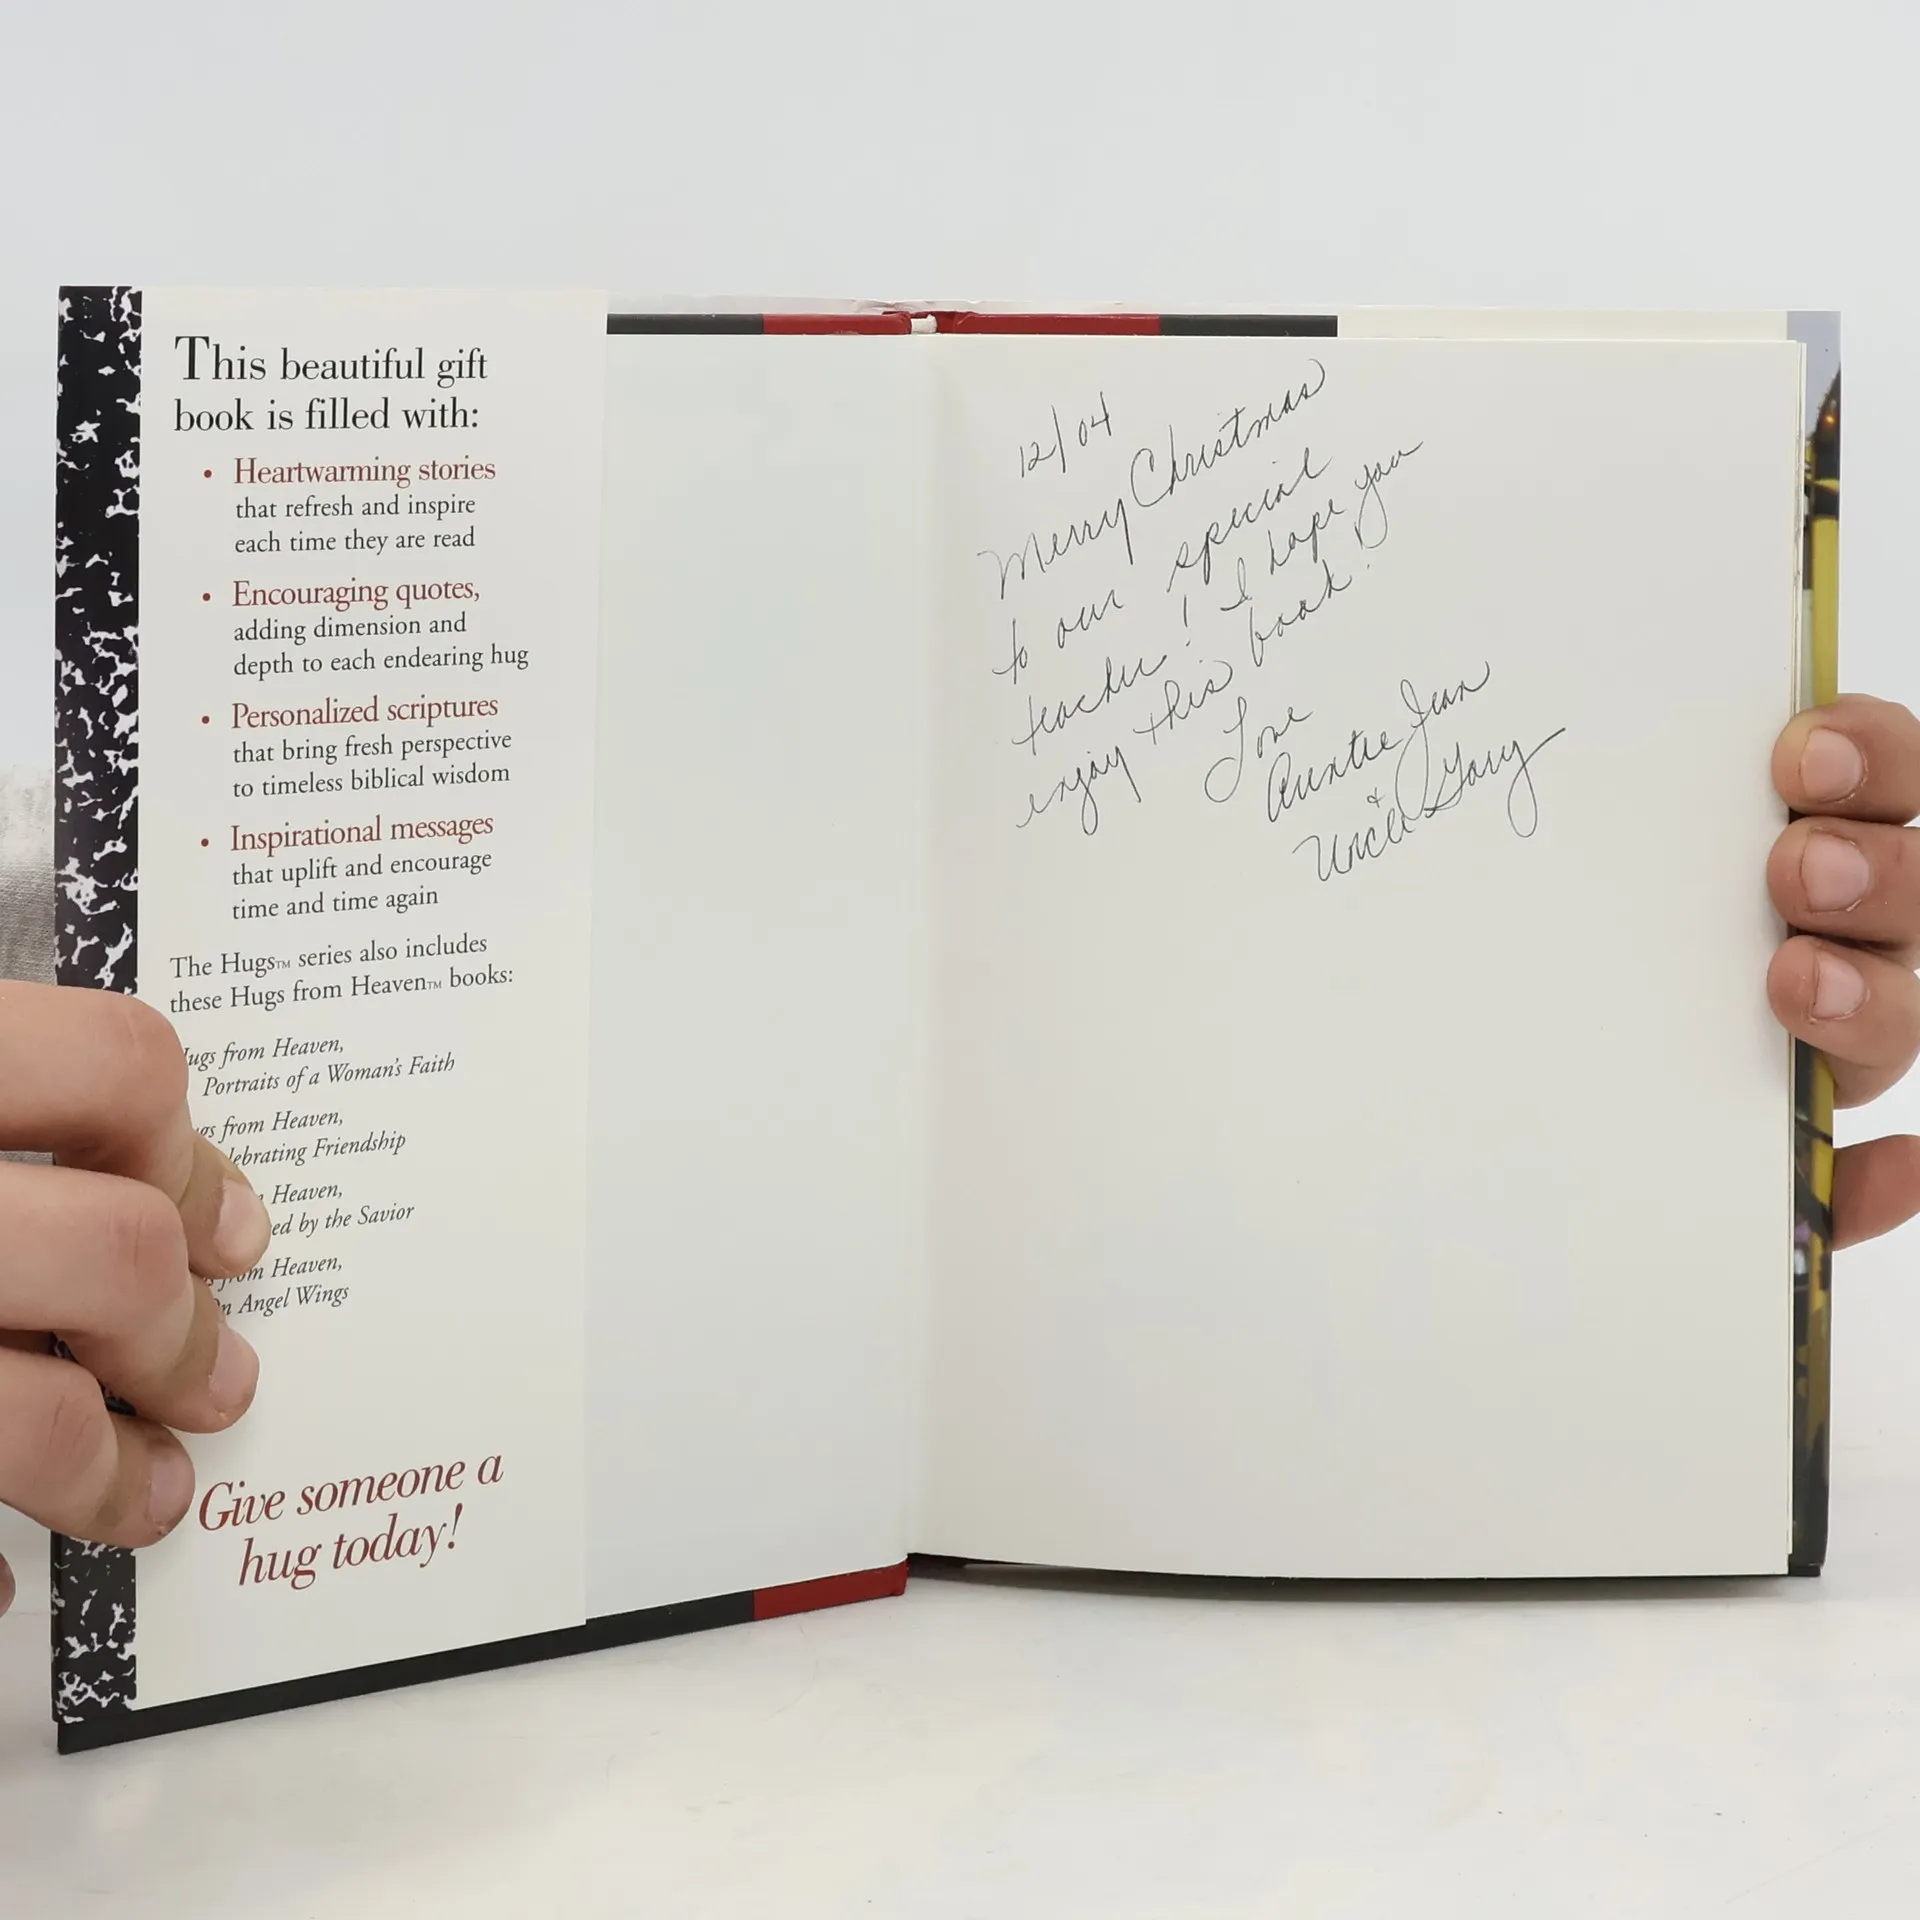 This beautiful gift
book is filled with:
• Heartwarming stories
that refresh and inspire
each time they are read
• Encouraging quotes,
adding dimension and
depth to each endearing hug
• Personalized scriptures
that bring fresh perspective
to timeless biblical wisdom
• Inspirational messages
that uplift and encourage
time and time again
The Hugs™ series also includes
these Hugs from Heaven™ books:
ugs from Heaven,
Portraits of a Woman's Faith
gs from Heaven,
lebrating Friendship
Heaven,
ed by the Savior
from Heaven,
n Angel Wings
Give someone a
hug today!
12/04
Merry Christmas
to our special
teacher! I hope you
enjoy this book!
Love
Auntie Jean
&
Uncle Gary